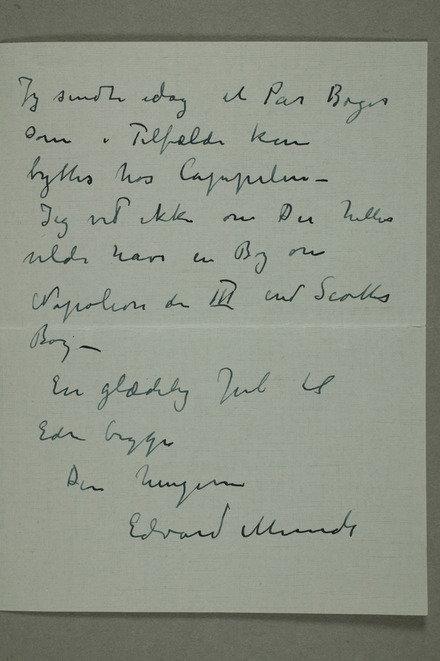 Jeg sendte idag et Par Bøger
som i Tilfælde kan
byttes hos Cappelen –
Jeg ved ikke om Du heller
vilde have en Bog om
Napoleon den III end Scotts
Bog –
En glædelig Jul til
Eder begge
Din hengivne
Edvard Munch